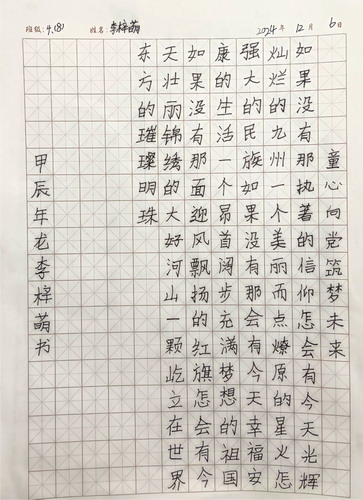 班级: 4.(8) 姓名: 李梓萌 2024年 12月 6日
童心向党筑梦未来
如果没有那执著的信仰怎会有今天光辉
灿烂的九州一个美丽而点燎原的星火怎
强大的民族如果没有那会有今天幸福安
康的生活一个昂首阔步充满梦想的祖国
如果没有那面迎风飘扬的红旗怎会有今
天壮丽锦绣的大好河山一颗屹立在世界
东方的璀璨明珠
甲辰年龙李梓萌书